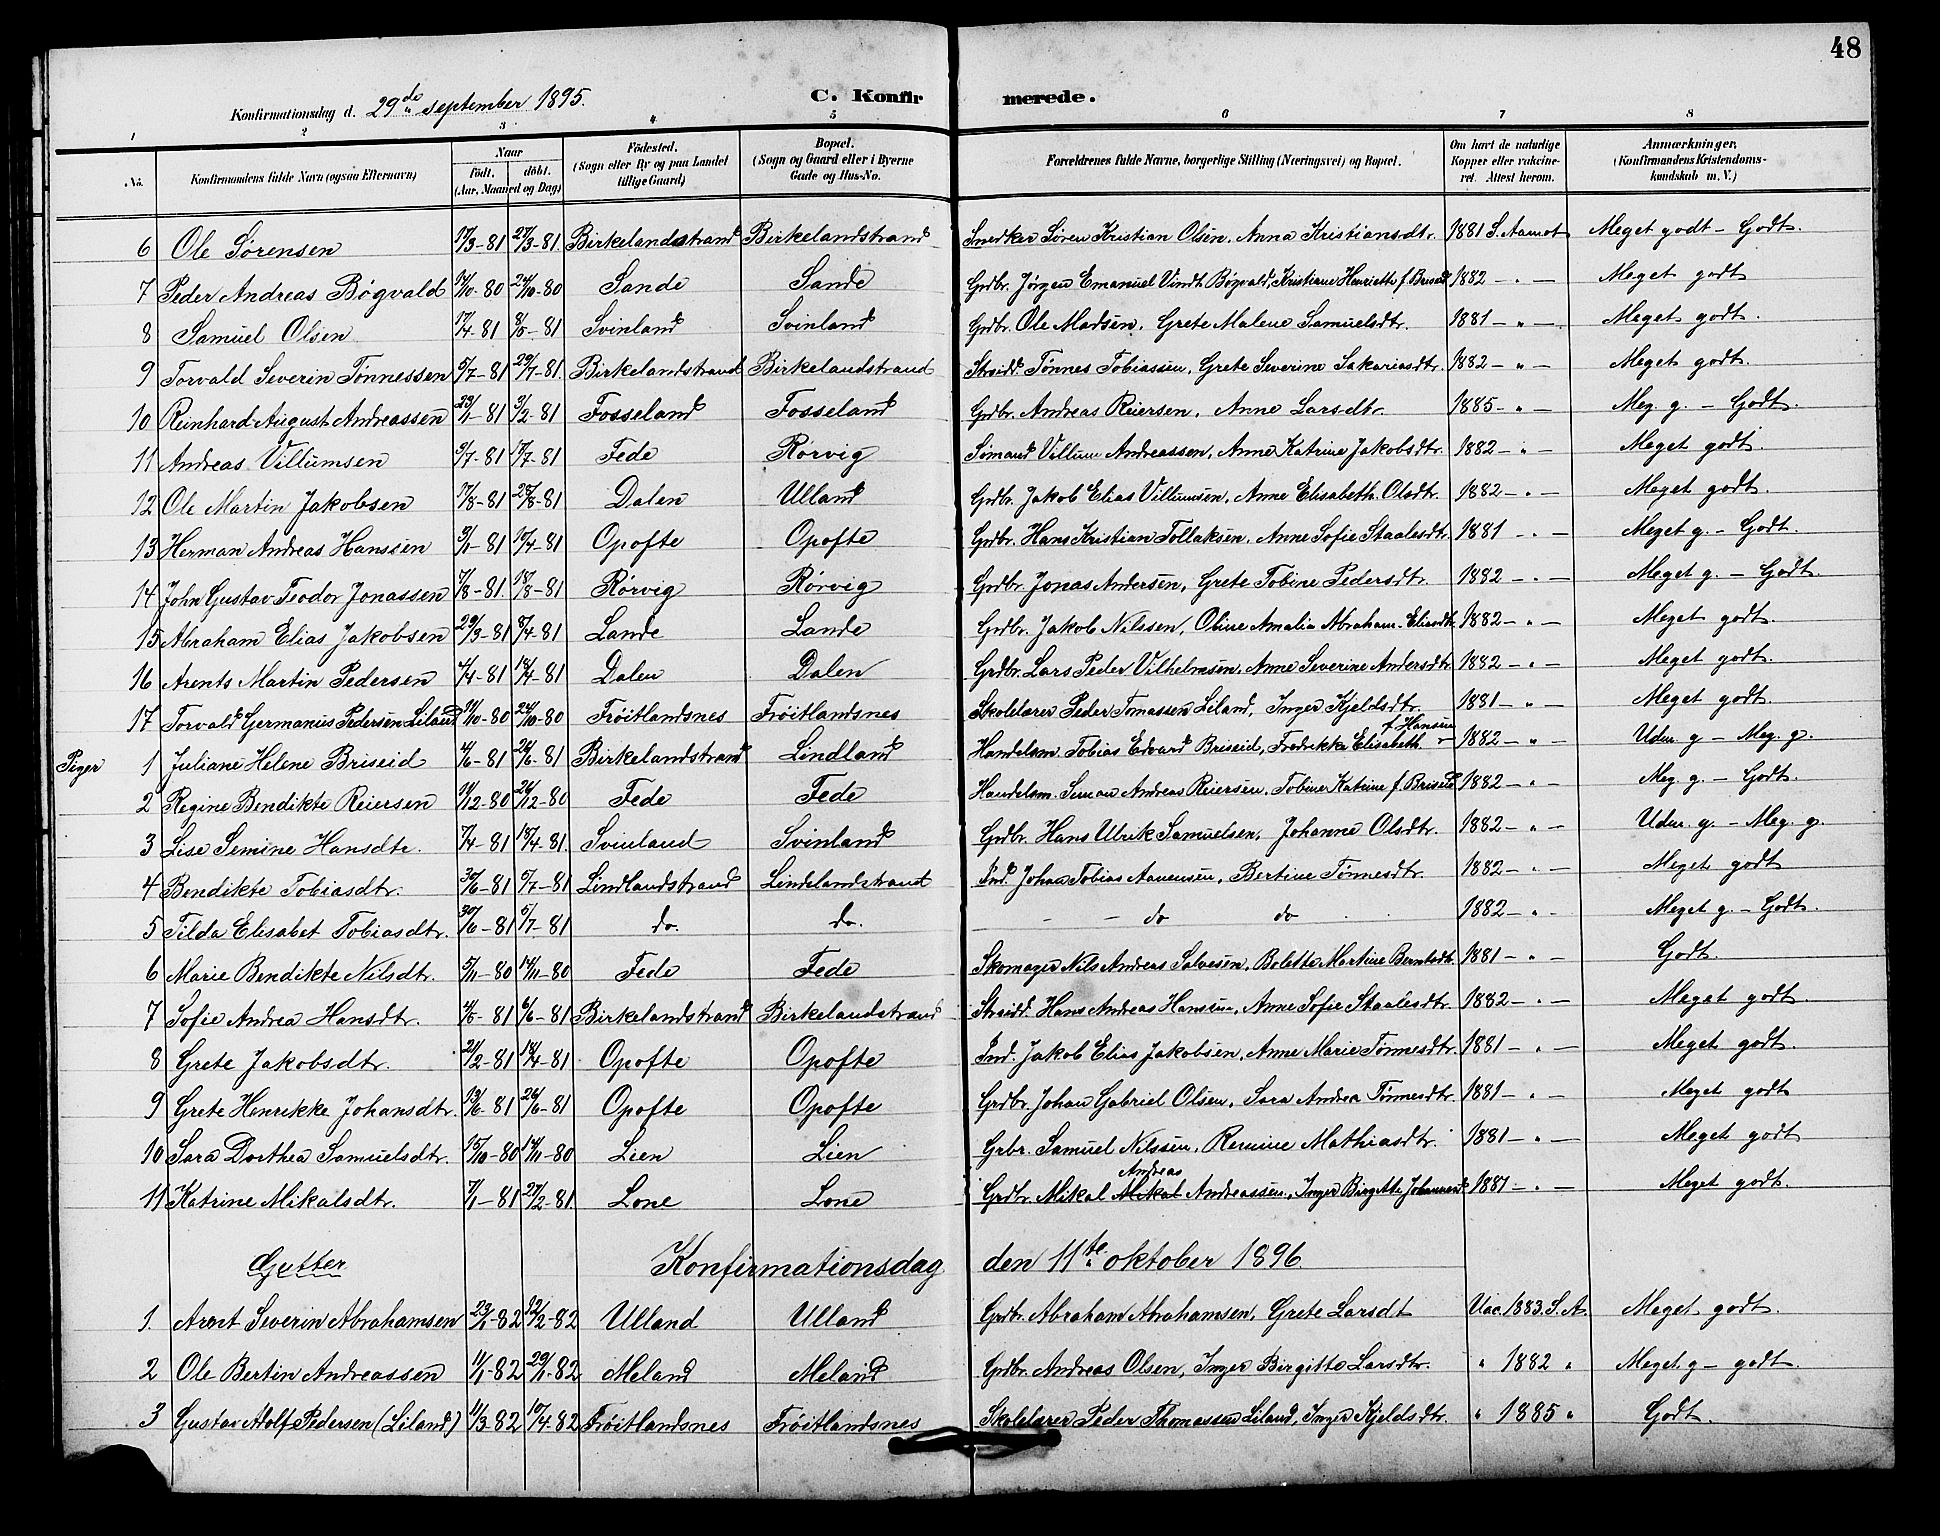 48
Konfirmationsdag d. 29de september 1895. C. Konfirmerede.
1 2 3 4 5 6 7 8
No. Konfirmandens fulde Navn (ogsaa Efternavn) Naar født. døbt. (Aar, Maaned og Dag) Fødested. (Sogn eller By og paa Landet tillige Gaard) Bopæl. (Sogn og Gaard eller i Byerne Gade og Hus-No. Forældrenes fulde Navne, borgerlige Stilling (Næringsvei) og Bopæl. Om havt de naturlige Kopper eller vakcineret. Attest herom. Anmærkninger, (Konfirmandens Kristendomskundskab m. V.)
6 Ole Sørensen 17/3-81 27/3-81. Birkelandsstrand Birkelandstrand Snedker Søren Kristian Olsen. Anna Kristiansdtr. 1881 S. Aamot Meget godt - Godt.
7 Peder Andreas Bøgvald 14/10-80 24/10-80 Sande Sande Grdbr. Jørgen Emanuel Vindt Bøgvald, Kristiane Henriette f. Briseid 1882 - " - Meget godt
8 Samuel Olsen 17/4-81 8/5-81 Svinland Svinland Grdbr. Ole Madsen. Grete Malene Samuelsdtr. 1881 - " - Meget godt.
9 Torvald Severin Tønnessen 5/7-81 29/7-81. Birkelandstrand Birkelandstrand Strsidd. Tønnes Tobiassen, Grete Severine Sakariasdtr. 1882 - " - Meget godt.
10 Reinhard August Andreassen 23/1-81 3/2-81 Fosseland Fosseland Grdbr. Andreas Reiersen, Anne Larsdtr. 1885 - " - Meg. g. - Godt.
11 Andreas Villumsen 9/7-81 17/7-81 Fede Rørvig Sømand Villum Andreassen, Anne Katrine Jakobsdtr. 1882 - " - Meget godt.
12 Ole Martin Jakobsen 17/8-81 28/8-81 Dalen Ulland Grdbr. Jakob Elias Villumsen, Anne Elisabeth Olsdtr. 1882 - " - Meget godt.
13 Herman Andreas Hanssen 9/1-81 17/4-81 Opofte Opofte Grdbr. Hans Kristian Tollaksen, Anne Sofie Staalesdtr. 1881 - " - Meget g. - Godt.
14 John Gustav Teodor Jonassen 7/8-81. 18/8-81 Rørvig Rørvig Grdbr. Jonas Andersen, Grete Tobine Pedersdtr. 1882 - " - Meget g. - Godt.
15 Abraham Elias Jakobsen 29/3-81 8/4-81 Lande Lande Grdbr. Jakob Nilssen, Oline Amalia Abraham-Eliasdtr. 1882 - " - Meget godt.
16 Arents Martin Pedersen 4/4-81 18/4-81 Dalen Dalen Grdbr. Lars Peder Vilhelmsen, Anne Severine Andersdtr. 1882 - " - Meget godt.
17 Torvald Germanius Pedersen Liland 11/10-80 24/10-80 Frøitlandsnes Frøitlandsnes Skolelærer Peder Tomassen Liland, Inger Kjeldsdtr. 1881 - " - Meget godt.
Piger 1 Juliane Helene Briseid 4/6-81 26/6-81 Birkelandstrand Lindland Handelsm. Tobias Edvard Briseid, Fredrikke Elisabeth f. Hansen 1882 - " - Udm. g - Meg. g.
2 Regine Bendikte Reiersen 11/12-80 26/12-80 Fede Fede Handelsm. Simon Andreas Reiersen, Tobine Katrine f. Briseid 1882 - " - Meg. g. - Godt.
3 Lise Semine Hansdtr. 7/4-81 18/4-81. Svinland Svinland Grdbr. Hans Ulrik Samuelsen, Johanne Olsdtr. 1882 - " - Udm. g. - Meg. g.
4 Bendikte Tobiasdtr. 30/6-81 5/7-81 Lindlandstrand Lindelandstrand Ind. Johan Tobias Aanensen, Bertine Tønnesdtr. 1882 - " - Meget godt
5 Tilda Elisabet Tobiasdtr. 30/6-81 5/7-81 do. do. - - do do 1882 - " - Meget g. - Godt.
6 Marie Bendikte Nilsdtr. 5/11-80 14/11-80 Fede Fede Skomager Nils Andreas Salvesen, Bolette Martine Berntsdtr. 1881 - " - Godt.
7 Sofie Andrea Hansdtr. 4/6-81 6/6-81 Birkelandstrand Birkelandstrand Strsidd. Hans Andreas Hansen, Anne Sofie Staalesdtr. 1882 - " - Meget godt
8 Grete Jakobsdtr. 21/2-81 18/4-81 Opofte Opofte Ind. Jakob Elias Jakobsen, Anne Marie Tønnesdtr. 1881 - " - Meget godt.
9 Grete Henrikke Johansdtr. 13/6-81 26/6-81 Opofte Opofte Grdbr. Johan Gabriel Olsen, Sara Andrea Tønnesdtr. 1881 - " - Meget godt
10 Sara Dorthea Samuelsdtr. 15/10-80 14/11-80 Lien Lien Grbr. Samuel Nilssen, Remine Mathiasdtr. 1881 - " - Meget godt
11 Katrine Mikalsdtr. 7/1-81 27/2-81. Lone Lone Grdbr. Mikal Mikal Andreas Andreassen, Inger Birgitte Johannesd. 1881 - " - Meget godt.
Gutter Konfirmationsdag den 11te oktober 1896.
1. Arent Severin Abrahamsen 23/1-82 12/2-82 Ulland Ulland Grdbr. Abraham Abrahamsen, Grete Larsdt Vac. 1883. S. A. Meget godt.
2 Ole Bertin Andreassen 11/1-82 29/1-82 Meland Meland Grdbr. Andreas Olsen, Inger Birgitte Larsdtr. " 1882 " Meget g - godt.
3 Gustav Adolf Pedersen (Liland) 11/3 82 10/4-82 Frøitlandsnes Frøitlandsnes Skolelærer Peder Thomassen Liland, Inger Kjeldsdtr. " 1885 " Godt.